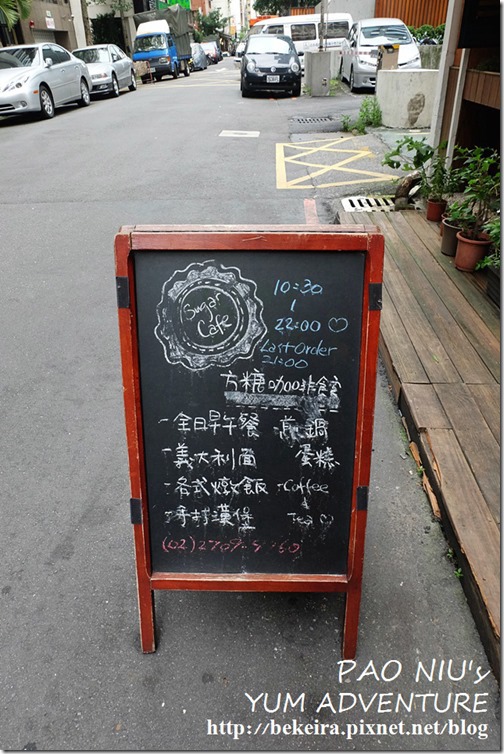 Sugar
Cafe
10:30
|
22:00 ♡
Last Order
21:00
方糖咖啡館
·全日早午餐
·義大利面
·各式燉飯
·手打漢堡
鍋
蛋糕
·Coffee
&
Tea ♡
(02)2709-
PAO NIU's
YUM ADVENTURE
http://bekeira.pixnet.net/blog